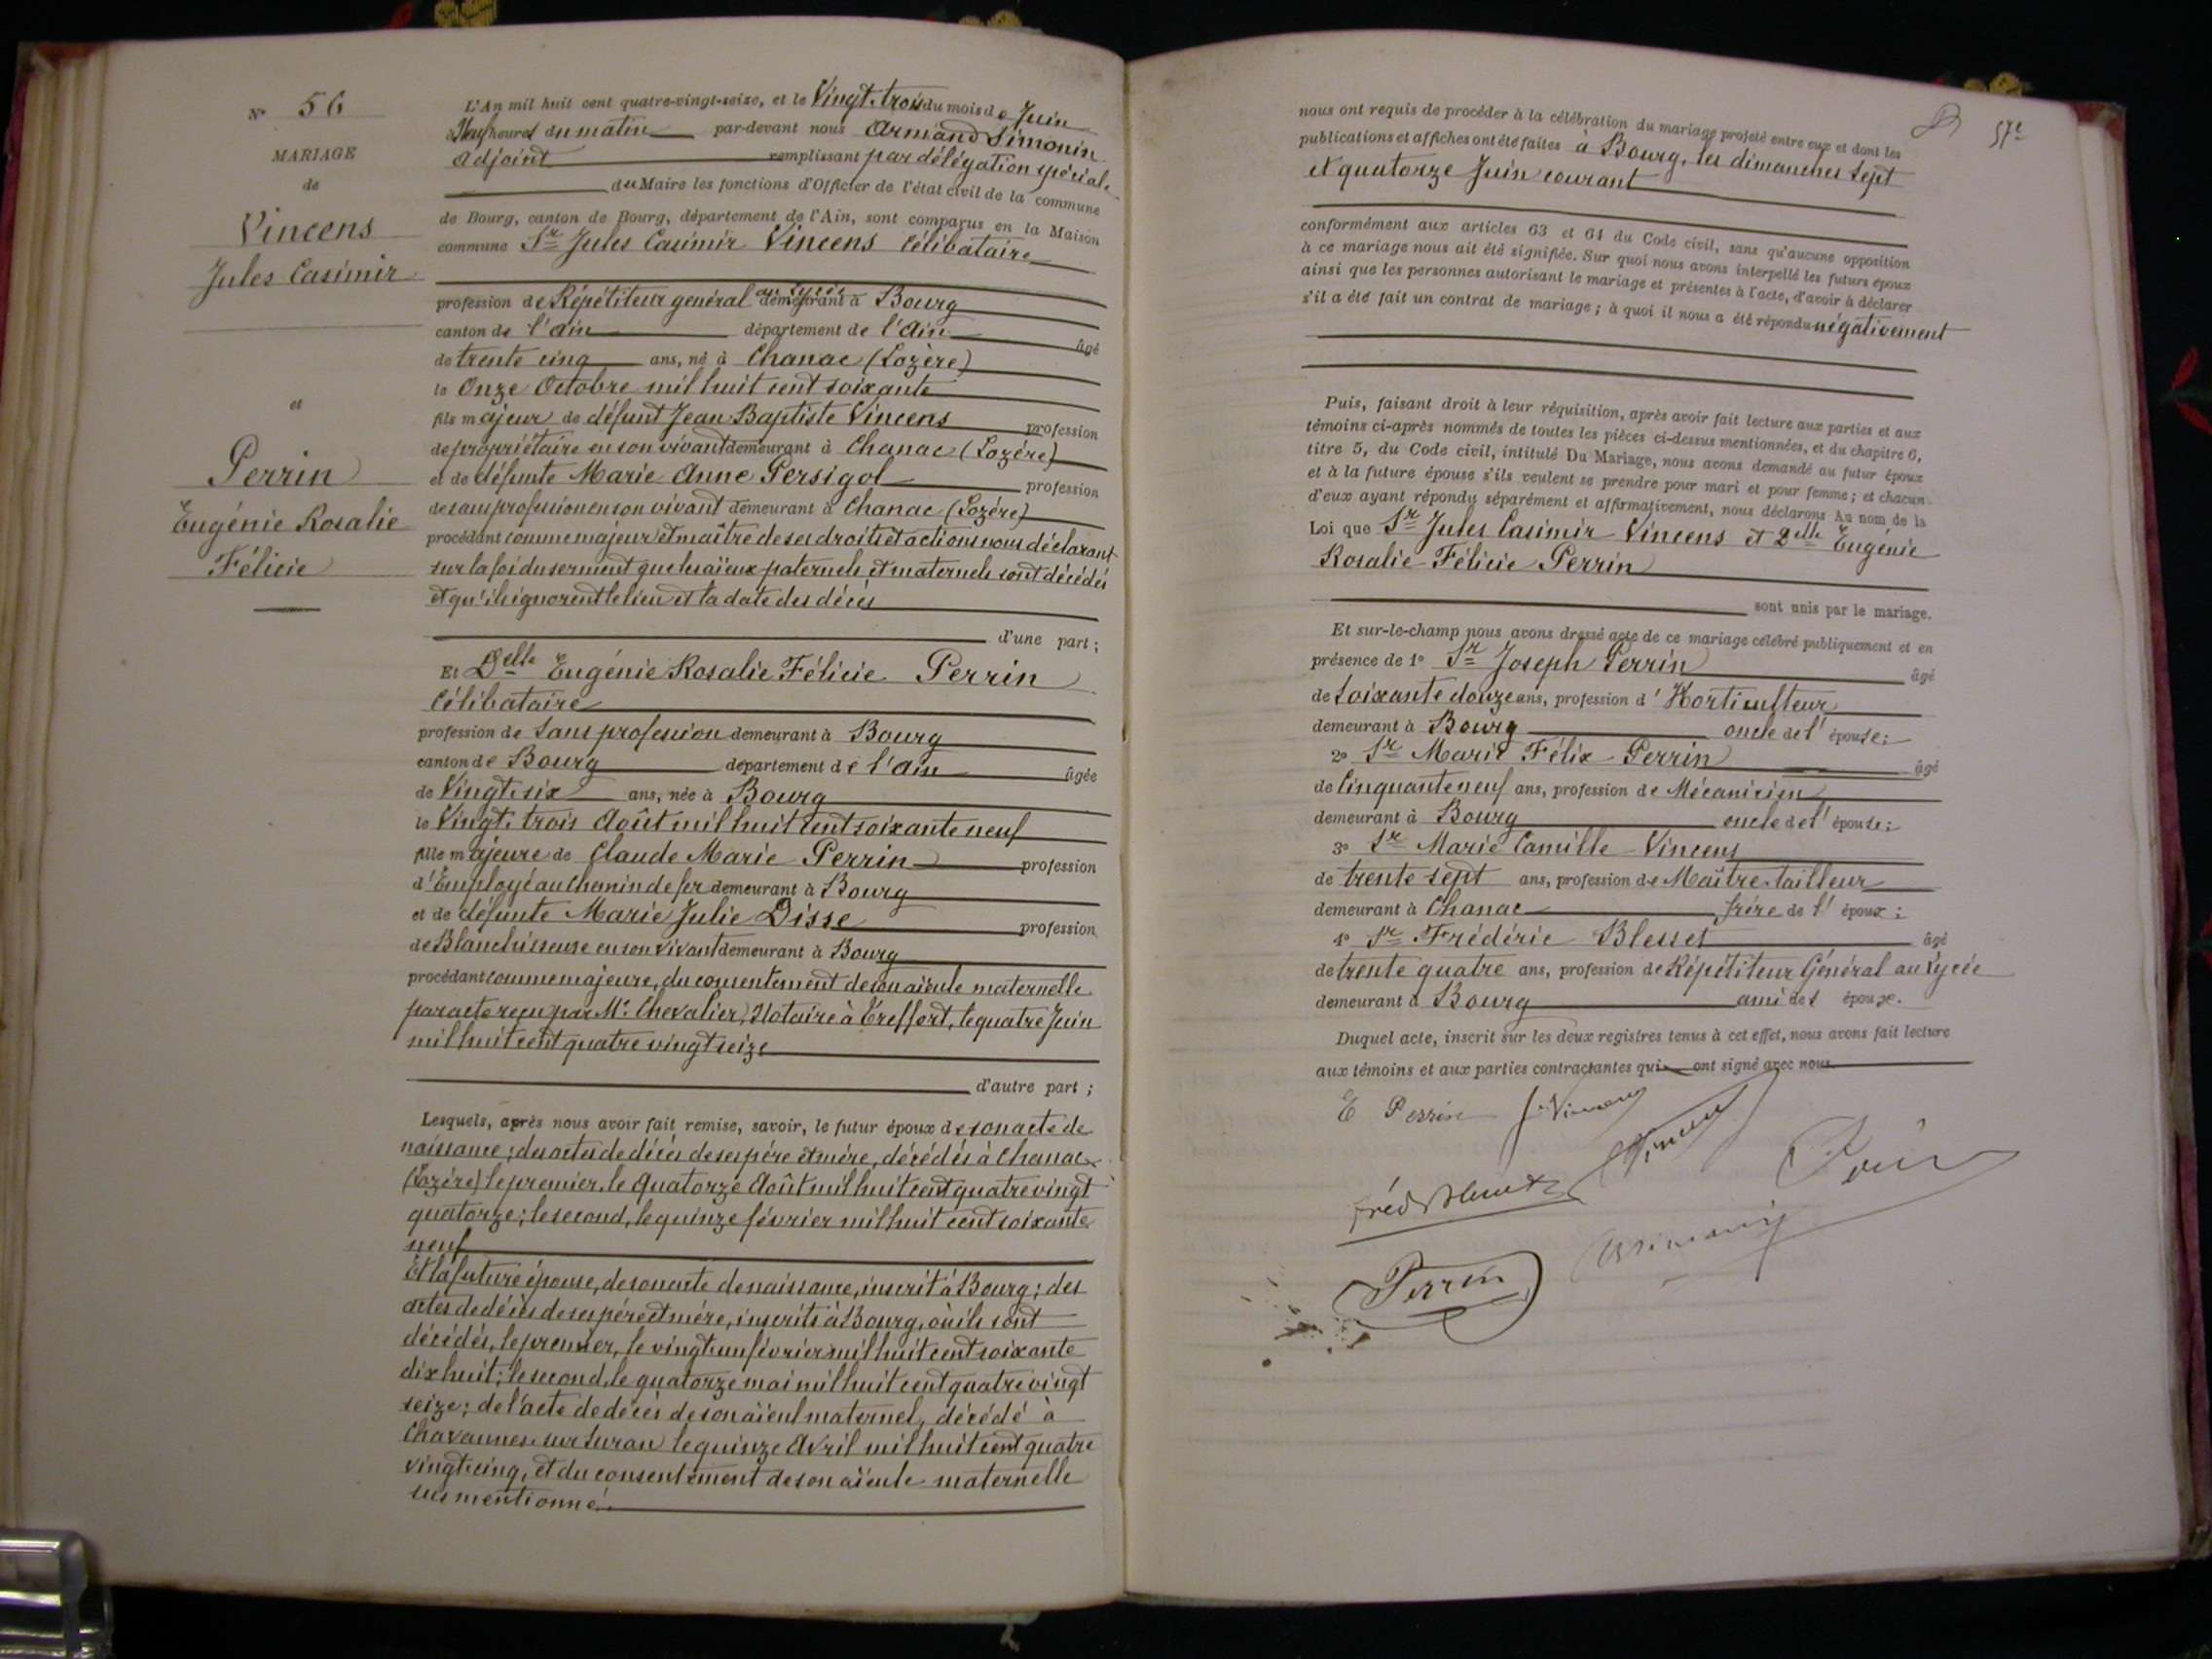 Nº 56
MARIAGE
de
Vincens
Jules Casimir
et
Perrin
Eugénie Rosalie
Félicie
L'An mil huit cent quatre-vingt-seize, et le Vingt-trois du mois de Juin
à Neuf heures du matin par-devant nous Armand Simonin
adjoint remplissant par délégation spéciale
du Maire les fonctions d'Officier de l'état civil de la commune
de Bourg, canton de Bourg, département de l'Ain, sont comparus en la Maison
commune Sr Jules Casimir Vincens célibataire
profession de Répétiteur général au Lycée demeurant à Bourg
canton de l'Ain département de l'Ain âgé
de trente cinq ans, né à Chanac (Lozère)
le Onze Octobre mil huit cent soixante
fils majeur de défunt Jean Baptiste Vincens profession
de propriétaire en son vivant demeurant à Chanac (Lozère)
et de défunte Marie Anne Persigol profession
de sans profession en son vivant demeurant à Chanac (Lozère)
procédant comme majeur et maître de ses droits et actions nous déclarant
sur la foi du serment que les aïeux paternels et maternels sont décédés
et qu'ils ignorent le lieu et la date des décès
d'une part ;
Et Delle Eugénie Rosalie Félicie Perrin
Célibataire
profession de Sans profession demeurant à Bourg
canton de Bourg département de l'Ain âgée
de Vingt-six ans, née à Bourg
le Vingt-trois Août mil huit cent soixante neuf
fille majeure de Claude Marie Perrin profession
d'Employé au chemin de fer demeurant à Bourg
et de défunte Marie Julie Disse profession
de Blanchisseuse en son vivant demeurant à Bourg
procédant comme majeure, du consentement de son aïeule maternelle
par acte reçu par Me Chevalier, Notaire à Treffort, le quatre Juin
mil huit cent quatre vingt seize
d'autre part ;
Lesquels, après nous avoir fait remise, savoir, le futur époux de son acte de
naissance ; des actes de décès de ses père et mère, décédés à Chanac
(Lozère) le premier, le quatorze Août mil huit cent quatre vingt
quatorze ; le second, le quinze février mil huit cent soixante
neuf
Et la future épouse, de son acte de naissance, inscrit à Bourg ; des
actes de décès de ses père et mère, inscrits à Bourg, où ils sont
décédés, le premier, le vingt un février mil huit cent soixante
dix huit ; le second, le quatorze mai mil huit cent quatre vingt
seize ; de l'acte de décès de son aïeul maternel, décédé à
Chavannes sur Suran le quinze Avril mil huit cent quatre
vingt-cinq, et du consentement de son aïeule maternelle
sus mentionné.
57e
nous ont requis de procéder à la célébration du mariage projeté entre eux et dont les
publications et affiches ont été faites à Bourg, les dimanches sept
et quatorze Juin courant
conformément aux articles 63 et 64 du Code civil, sans qu'aucune opposition
à ce mariage nous ait été signifiée. Sur quoi nous avons interpellé les futurs époux
ainsi que les personnes autorisant le mariage et présentes à l'acte, d'avoir à déclarer
s'il a été fait un contrat de mariage ; à quoi il nous a été répondu négativement
Puis, faisant droit à leur réquisition, après avoir fait lecture aux parties et aux
témoins ci-après nommés de toutes les pièces ci-dessus mentionnées, et du chapitre 6,
titre 5, du Code civil, intitulé Du Mariage, nous avons demandé au futur époux
et à la future épouse s'ils veulent se prendre pour mari et pour femme ; et chacun
d'eux ayant répondu séparément et affirmativement, nous déclarons Au nom de la
Loi que Sr Jules Casimir Vincens et Delle Eugénie
Rosalie Félicie Perrin
sont unis par le mariage.
Et sur-le-champ nous avons dressé acte de ce mariage célébré publiquement et en
présence de 1º Sr Joseph Perrin âgé
de Soixante douze ans, profession d'Horticulteur
demeurant à Bourg oncle de l'épouse ;
2º Sr Marie Félix Perrin âgé
de Cinquante neuf ans, profession de Mécanicien
demeurant à Bourg oncle de l'épouse ;
3º Sr Marie Camille Vincens
de trente sept ans, profession de Maître-tailleur
demeurant à Chanac frère de l'époux ;
4º Sr Frédéric Blesset âgé
de trente quatre ans, profession de Répétiteur Général au Lycée
demeurant à Bourg ami des époux.
Duquel acte, inscrit sur les deux registres tenus à cet effet, nous avons fait lecture
aux témoins et aux parties contractantes qui ont signé avec nous.
E Perrin J. Vincens
Vincens
Perrin